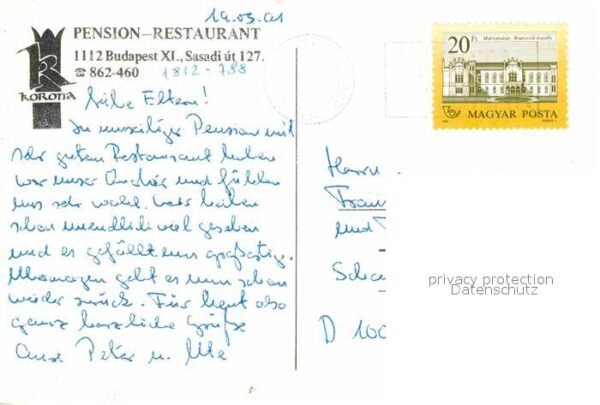 19.03.91
PENSION–RESTAURANT
1112 Budapest XI., Sasadi út 127.
☎ 862-460
1812-788
KORONA
Liebe Eltern!
In umseitiger Pension mit
sehr gutem Restaurant haben
wir unser Quartier und fühlen
uns sehr wohl. Wir haben
schon unendlich viel gesehen
und es gefällt uns großartig.
Übermorgen geht es nun schon
wieder zurück. Für heut also
ganz herzliche Grüße
Peter u. Ute
20 Ft
Martonvásár, Brunszvik-kastély
MAGYAR POSTA
Herrn
Frau
und
D 100
privacy protection
Datenschutz